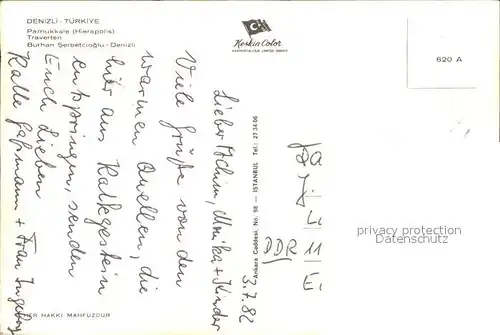 DENIZLI - TÜRKİYE
Pamukkale (Hierapolis)
Traverten
Burhan Şerbetcioğlu - Denizli
Keskin Color
620 A
3.7.82
Lieber Achim, Monika + Kinder
Viele Grüße von den
warmen Quellen, die
hier aus Kalkgestein
entspringen, senden
Euch Lieben
Kalle Gaßmann + Frau Ingeborg
Ankara Caddesi, No. 98 — İSTANBUL Tel.: 27 34 06
HER HAKKI MAHFUZDUR
DDR 11
privacy protection
Datenschutz